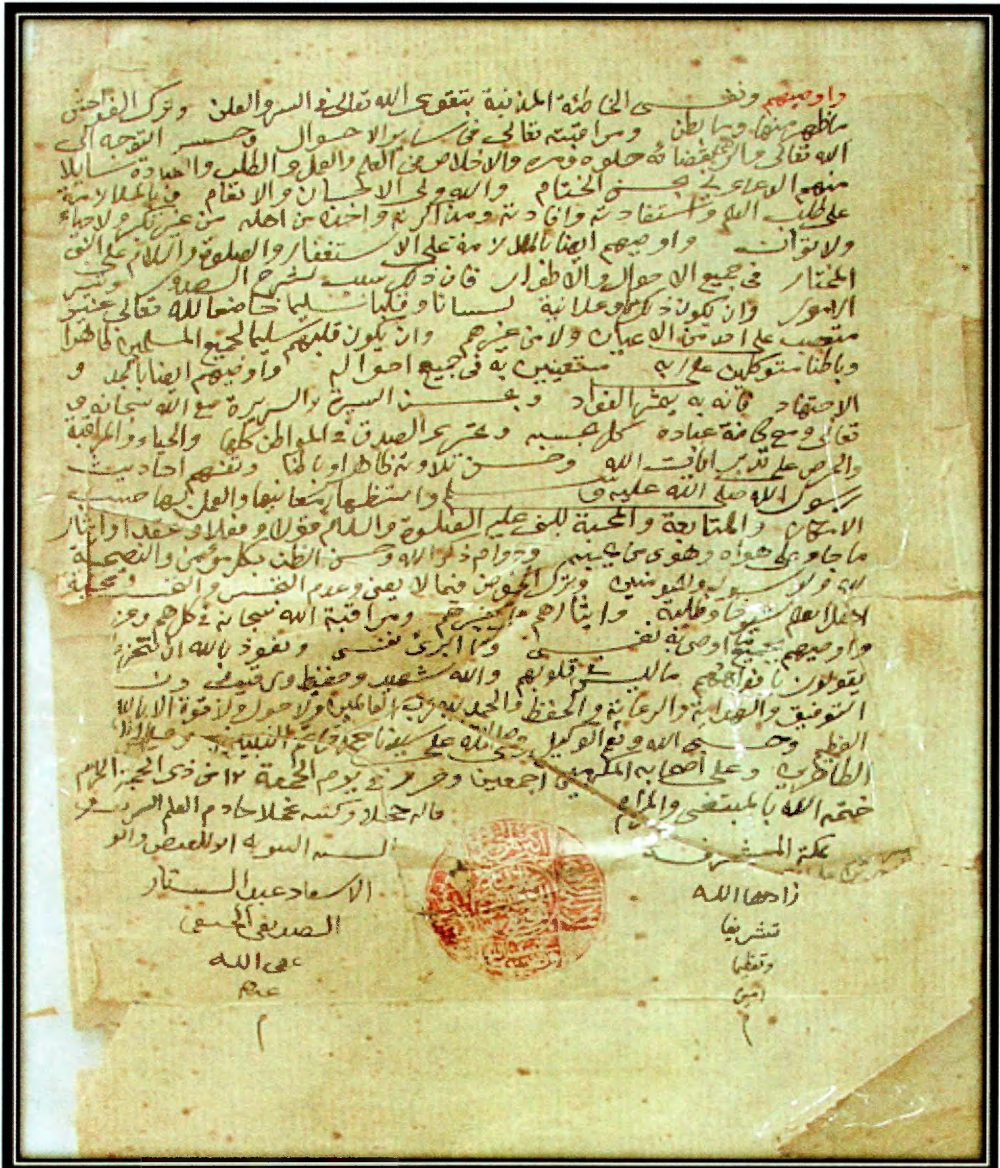 واوصيهم ونفسي الخاطئة المذنبة بتقوى الله تعالى في السر والعلن وترك الفواحش
ما ظهر منها وما بطن ومراقبته تعالى في ساير الاحوال وحسن التوجه الى
الله تعالى والرضى بقضائه حلوه ومره والاخلاص في العلم والعمل والطلب والعبادة سايلا
منهم الدعاء لي بحسن الختام والله ولي الاحسان والانعام وبالملازمة
على طلب العلم واستفادته وافادته ومذاكرته واخذه من اهله من غير تكبر ولا حياء
ولا توان واوصيهم ايضا بالملازمة على الاستغفار والصلوة والسلام على النبي
المختار في جميع الاحوال والاطوار فان ذلك سبب لشرح الصدور وتيسر
الامور وان يكون ذلك وعلانية لسانا وقلبا سليما خاضعا لله تعالى غير
متعصب على احد من الاعيان ولا من غيرهم وان يكون قلبهم سليما لجميع المسلمين ظاهرا
وباطنا متوكلين على الله مستعينين به في جميع احوالهم واوصيهم ايضا بالجد و
الاجتهاد فانه به يثمر الفواد وبحسن السيرة والسريرة مع الله سبحانه و
تعالى ومع كافة عباده كل بحسبه وتحري الصدق في المواطن كلها والحياء والمراقبة
والحرص على تدبر ايات الله وحسن تلاوته ظاهرا وباطنا وتفهم احاديث
رسول الله صلى الله عليه وسلم واستظهار معانيها والعمل بها حسب
الامكان والمتابعة والمحبة للنبي عليه الصلوة والسلام قولا وفعلا وعقدا وايثار
ما جاء على هواه وهوى من يحبه ودوام ذكر الله وحسن الظن بكل مؤمن والنصيحة
لله ولرسوله وللمؤمنين وترك الخوض فيما لا يعني وعدم التجسس ومحبة
اهل العلم شيوخا وطلبة وايثارهم على غيرهم ومراقبة الله سبحانه في كل
واوصيهم بجميع ما اوصي به نفسي وما ابرئ نفسي ونعوذ بالله ان
يقولون بافواههم ما ليس في قلوبهم والله شهيد وحفيظ ورقيب
التوفيق والهداية والرعاية والحفظ والحمد لله رب العالمين ولا حول ولا قوة الا بالله
العظيم وحسبي الله ونعم الوكيل وصلى الله على سيدنا محمد خاتم النبيين وعلى اله
الطاهرين وعلى اصحابه المكرمين اجمعين وحرر في يوم الجمعة ١٢ من ذي الحجة الحرام
ختمه الله بالمبتغى والمرام قاله عجلا وكتبه خجلا خادم العلم الشريف و
بمكة المشرفة السنة النبوية ابو الفيض وابو
زادها الله الاسعاد عبد الستار
تشريفا الصديقي الحنفي
وتعظيما عفى الله
امين عنه
م م